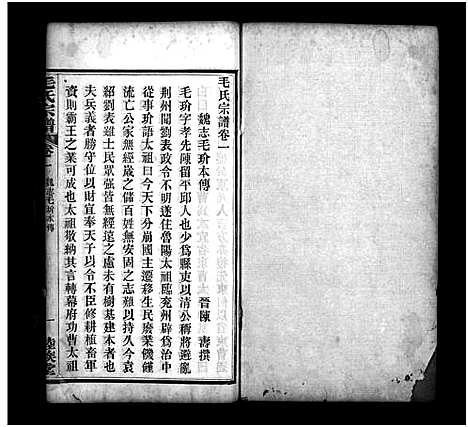 毛氏宗譜卷一
魏志毛玠本傳 晉陳壽撰
毛玠字孝先陳留平邱人也少為縣吏以清公稱將避亂
荊州聞劉表政令不明遂往魯陽太祖臨兗州辟為治中
從事玠語太祖曰今天下分崩國主遷移生民廢業饑饉
流亡公家無經歲之儲百姓無安固之志難以持久今袁
紹劉表雖士民眾強皆無經遠之慮未有樹基建本者也
夫兵義者勝守位以財宜奉天子以令不臣修耕植畜軍
資則霸王之業可成也太祖敬納其言轉幕府功曹太祖
毛氏宗譜 卷一 魏志毛玠本傳 一